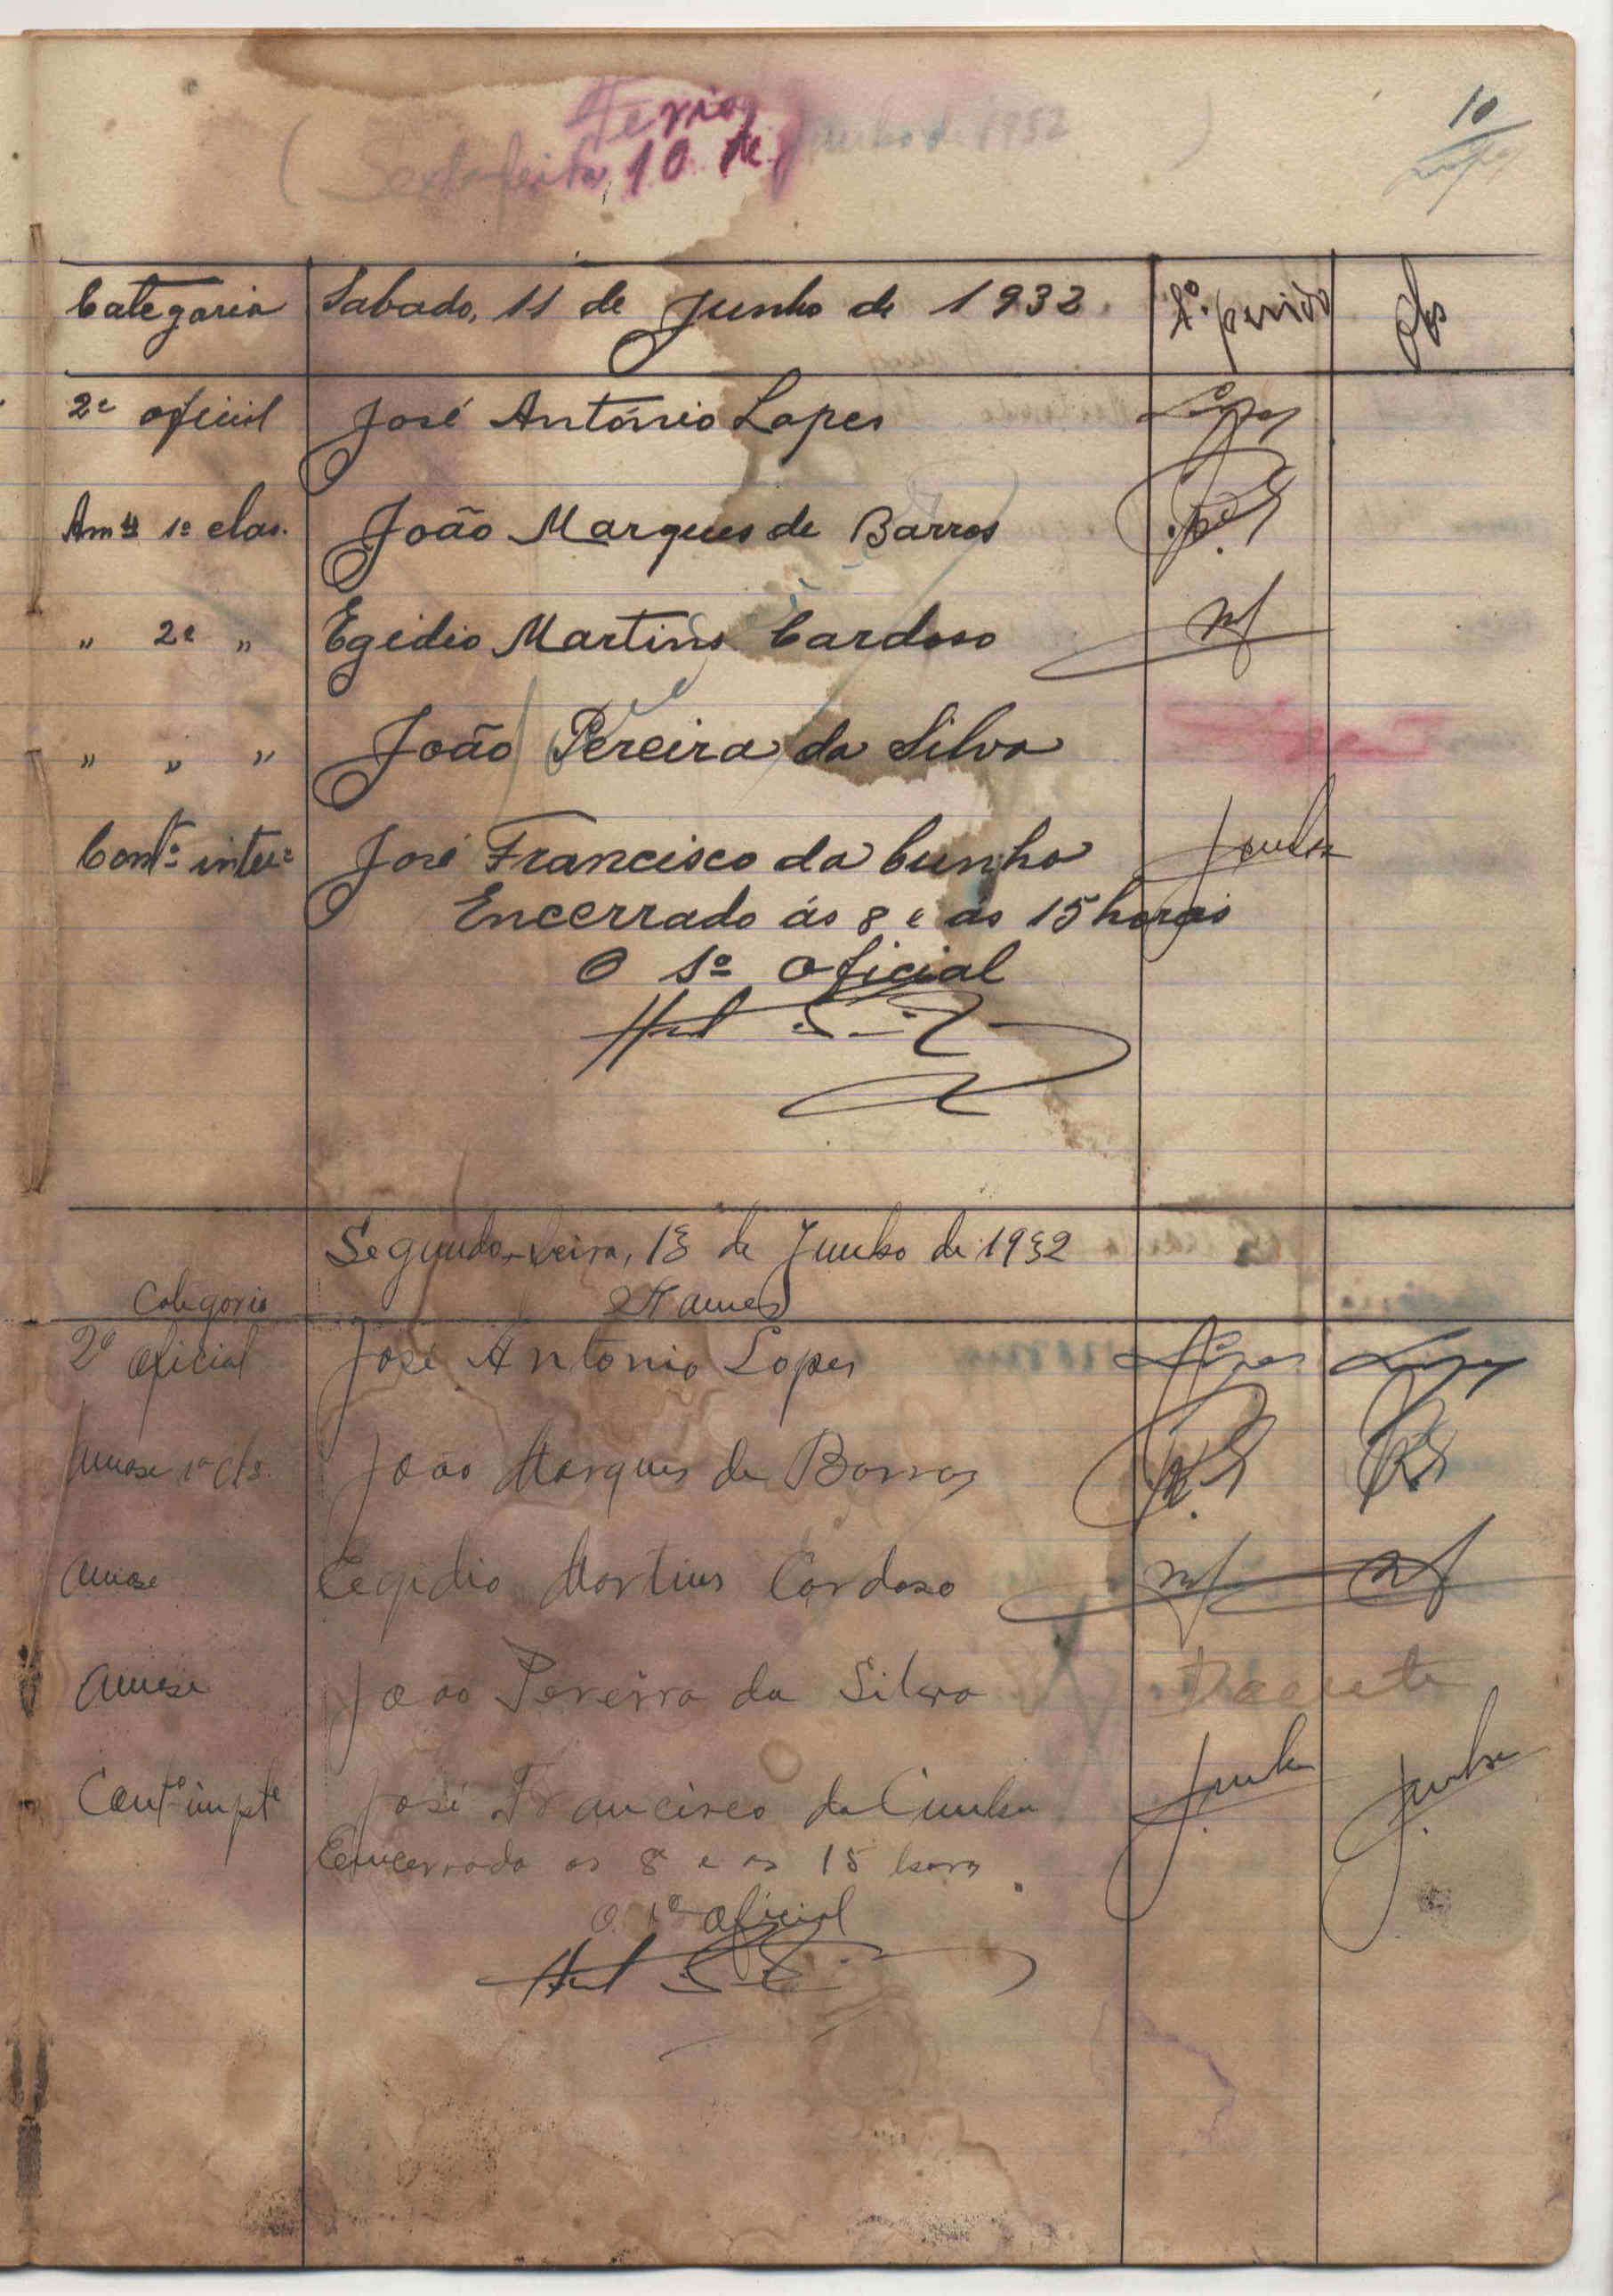 10
Feriado
(Sexta feira, 10 de Junho de 1932)
Categoria Sabado, 11 de Junho de 1932. 1º. periodo Obs
2º oficial José António Lopes Lopes
1ª clas. João Marques de Barros
" 2ª " Egidio Martins Cardoso
" " " João Pereira da Silva
José Francisco da Cunha Cunha
Encerrado ás 8 e ás 15 horas
O 1º oficial
Segunda-feira, 13 de Junho de 1932
Categoria Nomes
2º oficial José Antonio Lopes Lopes Lopes
1ª cls. João Marques de Barros
Egidio Martins Cardoso
João Pereira da Silva Doente
José Francisco da Cunha Cunha Cunha
Encerrado as 8 e as 15 horas
O 1º oficial